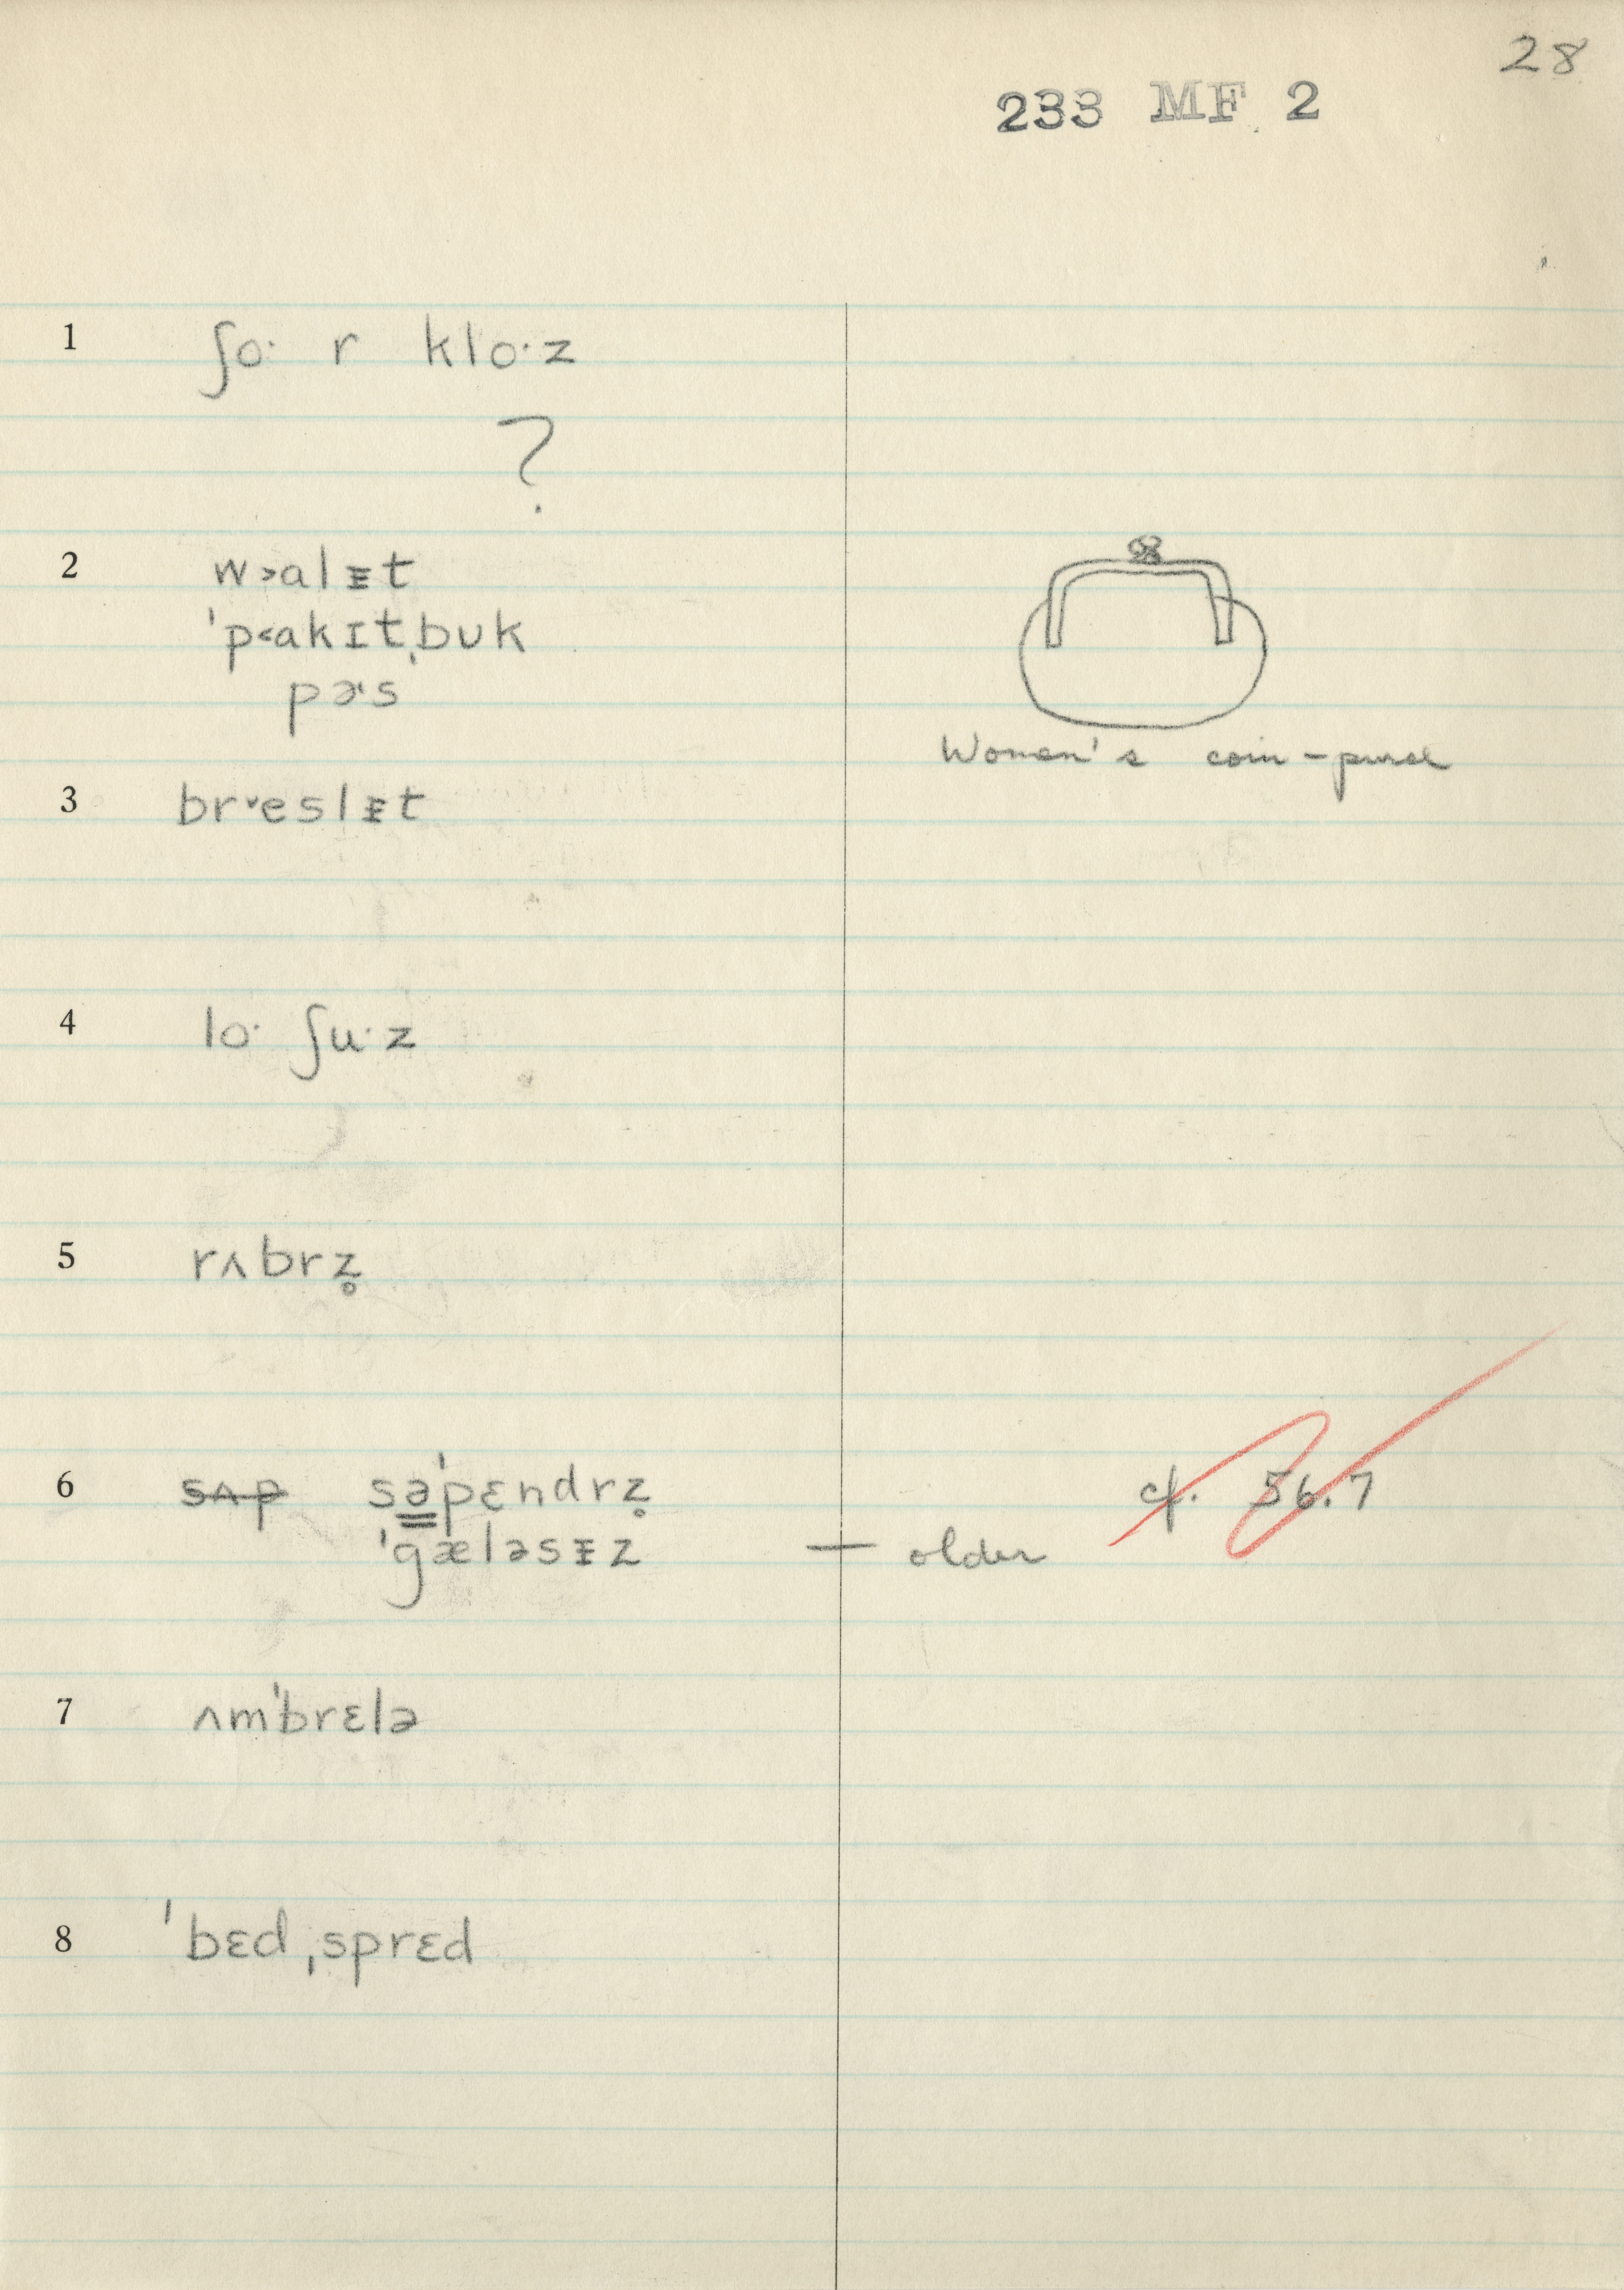 28
233 MF 2
1 ʃo· r klo·z
?
2 w˃alᵻt
ˈp˂akɪtˌbʊk
pɚs
Women's coin-purse
3 br˅eslᵻt
4 lo· ʃu·z
5 rʌbrz̥
6 s̶ʌ̶p̶ sə̳ˈpɛndrz̥ cf. 56.7
ˈgæləsᵻz — older
7 ʌmˈbrɛlə
8 ˈbɛdˌsprɛd